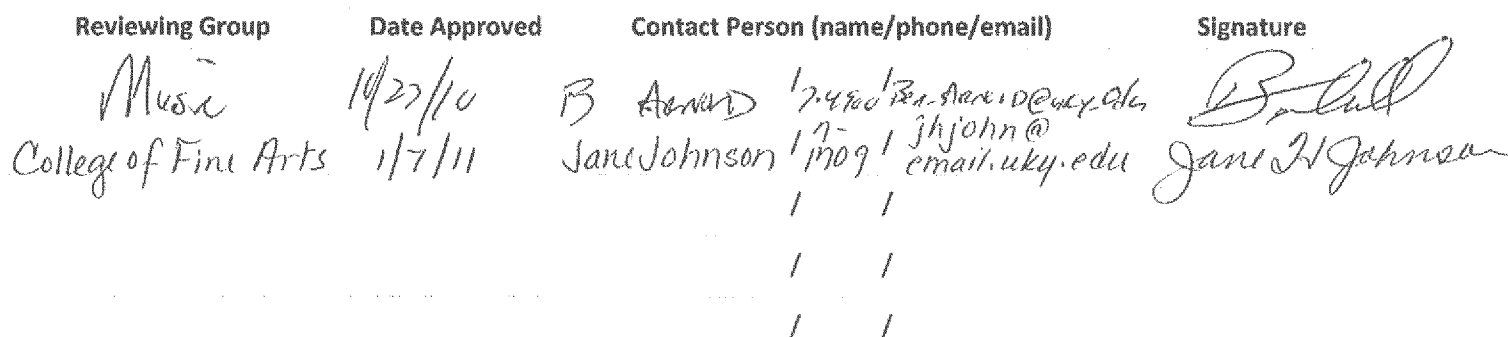 Reviewing Group Date Approved Contact Person (name/phone/email) Signature
Music 10/27/10 B Arnold / 7-4900 /
College of Fine Arts 1/7/11 Jane Johnson / 7-1709 / jhjohn@email.uky.edu Jane H Johnson
/ /
/ /
/ /